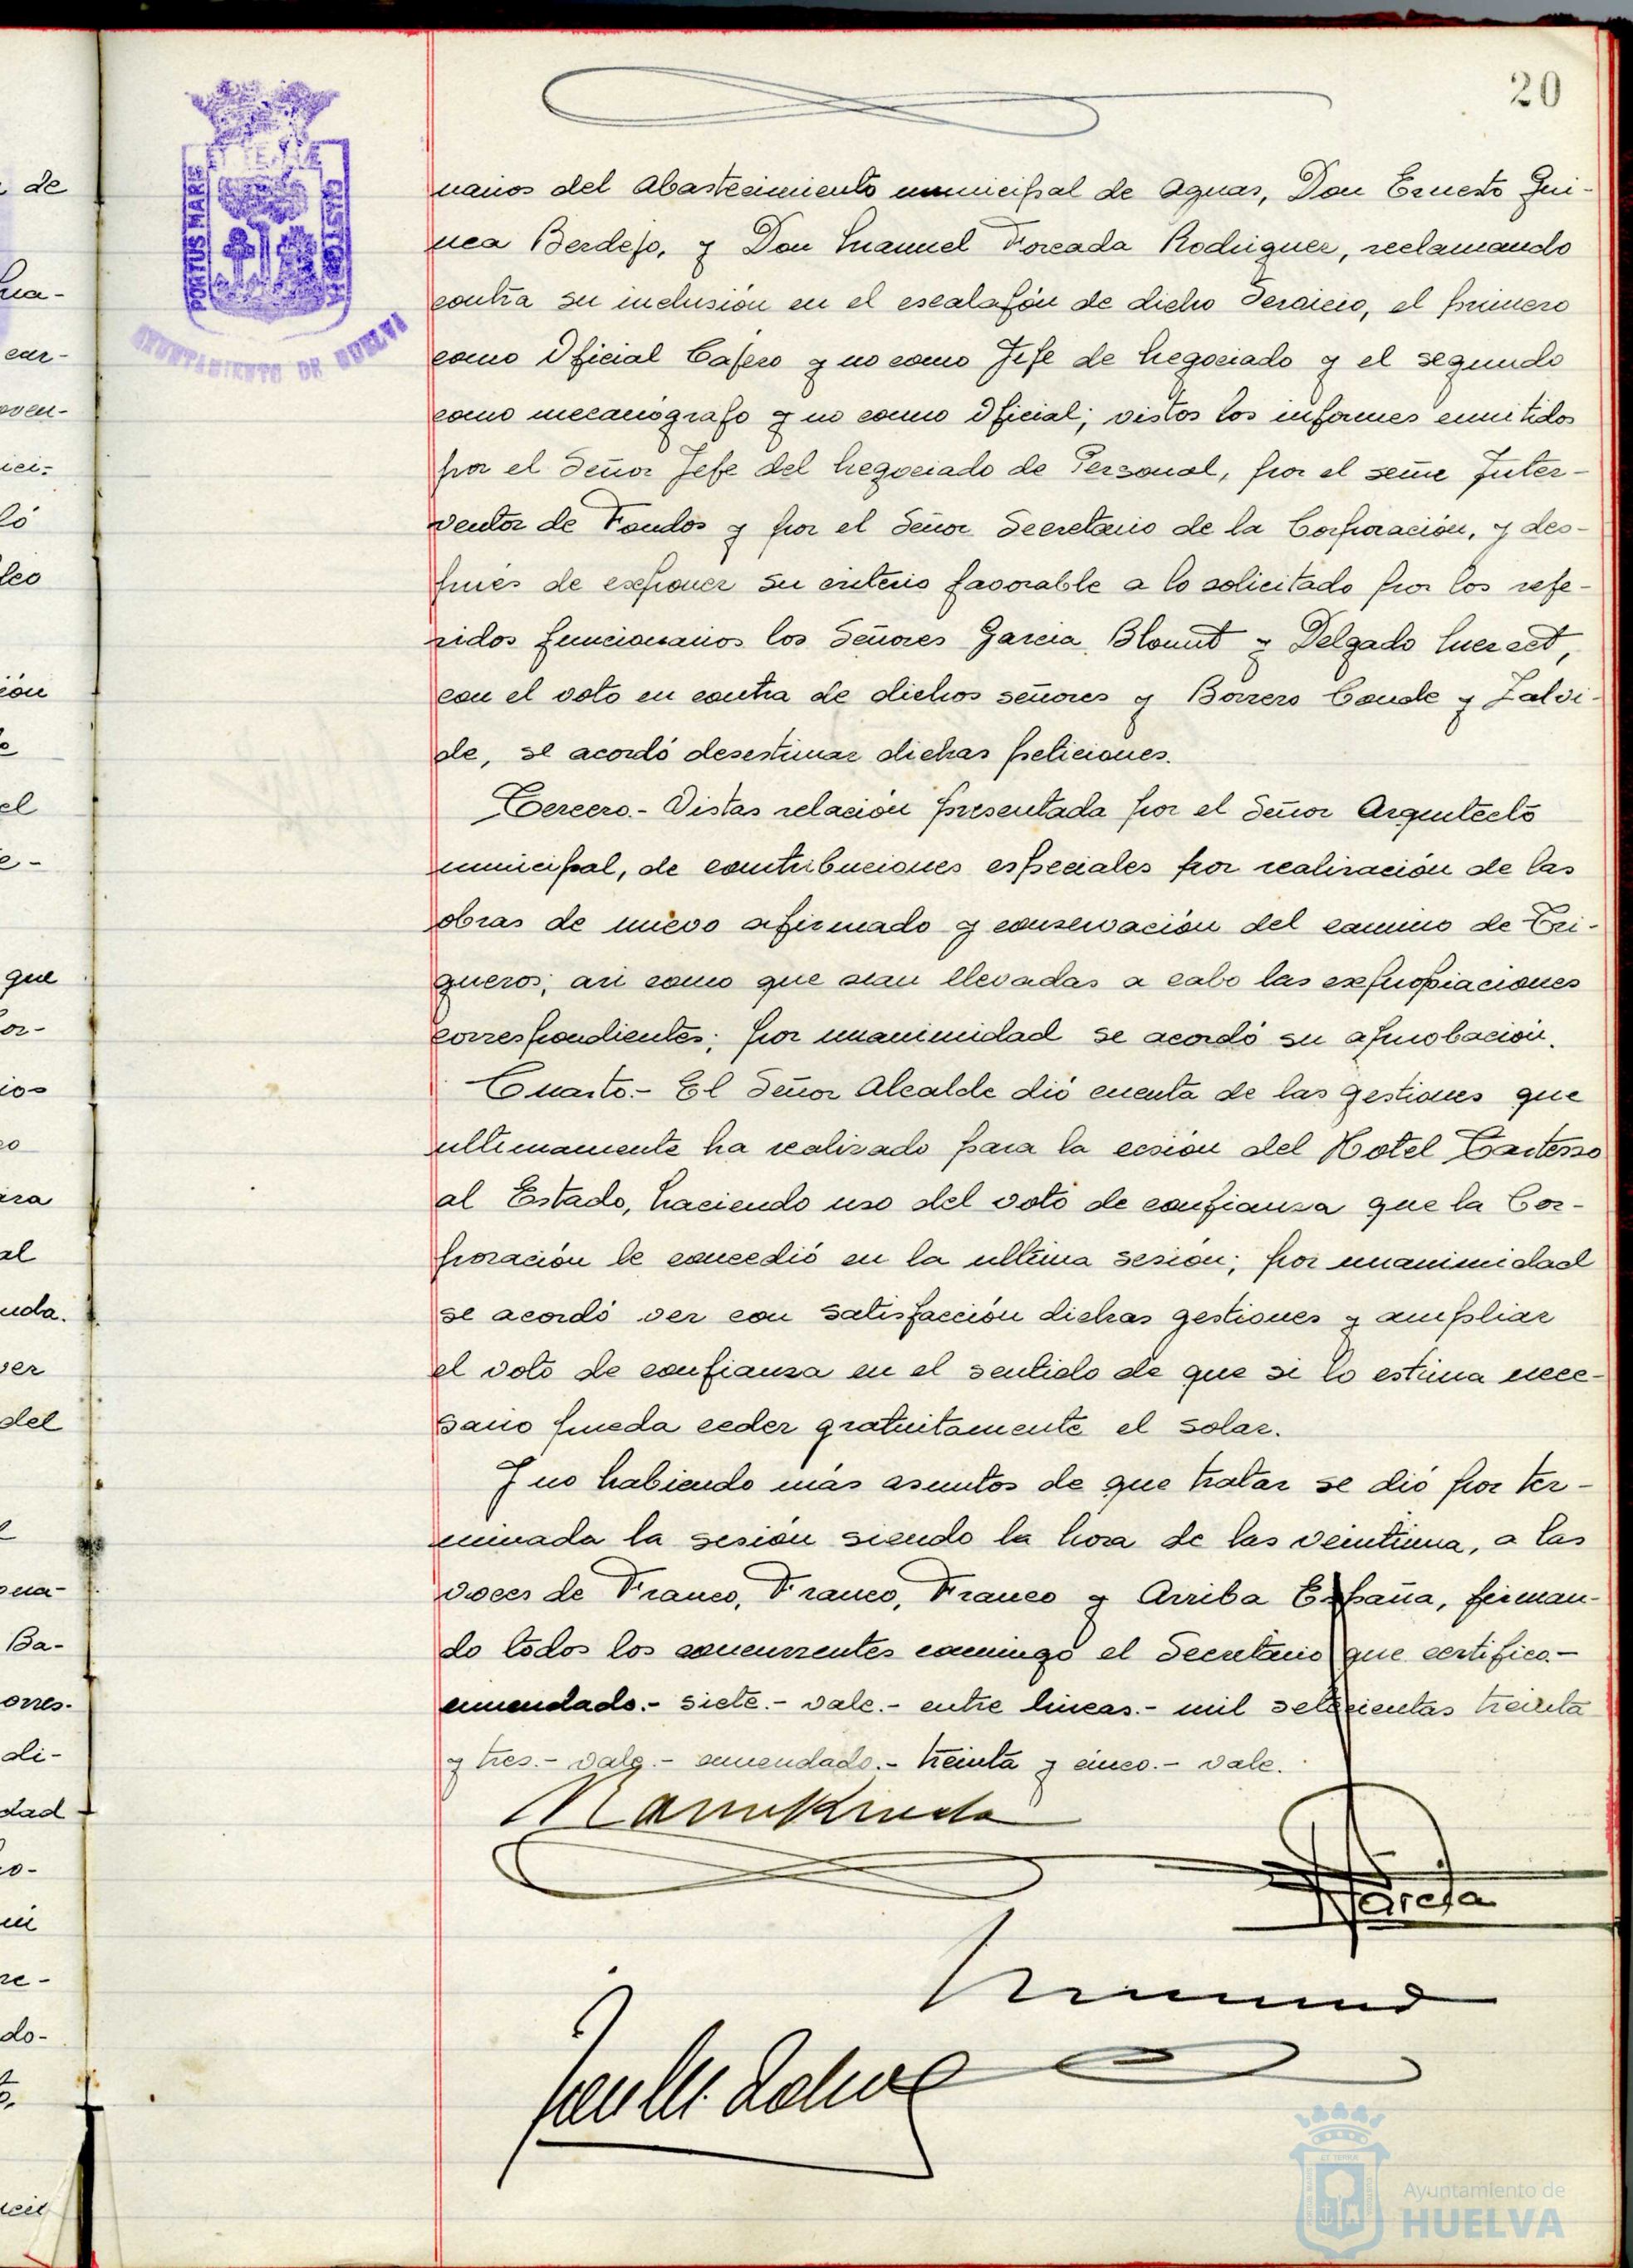 20
PORTUS MARIS
ET TERRAE
CUSTODIA
AYUNTAMIENTO DE HUELVA
narios del Abastecimiento municipal de Aguas, Don Ernesto Gui-
nea Berdejo, y Don Manuel Forcada Rodriguez, reclamando
contra su inclusión en el escalafón de dicho Servicio, el primero
como Oficial Cajero y no como Jefe de Negociado y el segundo
como mecanógrafo y no como Oficial; vistos los informes emitidos
por el Señor Jefe del Negociado de Personal, por el señor Inter-
ventor de Fondos y por el Señor Secretario de la Corporación, y des-
pués de exponer su criterio favorable a lo solicitado por los refe-
ridos funcionarios los Señores Garcia y Delgado
con el voto en contra de dichos señores y Borrero Conde y Zalvi-
de, se acordó desestimar dichas peticiones.
Tercero.- Vistas relación presentada por el Señor Arquitecto
municipal, de contribuciones especiales por realización de las
obras de nuevo afirmado y conservación del camino de Tri-
gueros; asi como que sean llevadas a cabo las expropiaciones
correspondientes; por unanimidad se acordó su aprobación.
Cuarto.- El Señor Alcalde dió cuenta de las gestiones que
ultimamente ha realizado para la cesión del Hotel Tartesso
al Estado, haciendo uso del voto de confianza que la Cor-
poración le concedió en la ultima sesión; por unanimidad
se acordó ver con satisfacción dichas gestiones y ampliar
el voto de confianza en el sentido de que si lo estima nece-
sario pueda ceder gratuitamente el solar.
Y no habiendo más asuntos de que tratar se dió por ter-
minada la sesión siendo la hora de las veintiuna, a las
voces de Franco, Franco, Franco y Arriba España, firman-
do todos los concurrentes conmigo el Secretario que certifico.-
enmendado.- siete.- vale.- entre lineas.- mil setecientas treinta
y tres.- vale.- enmendado.- treinta y cinco.- vale.
Garcia
Ayuntamiento de
HUELVA